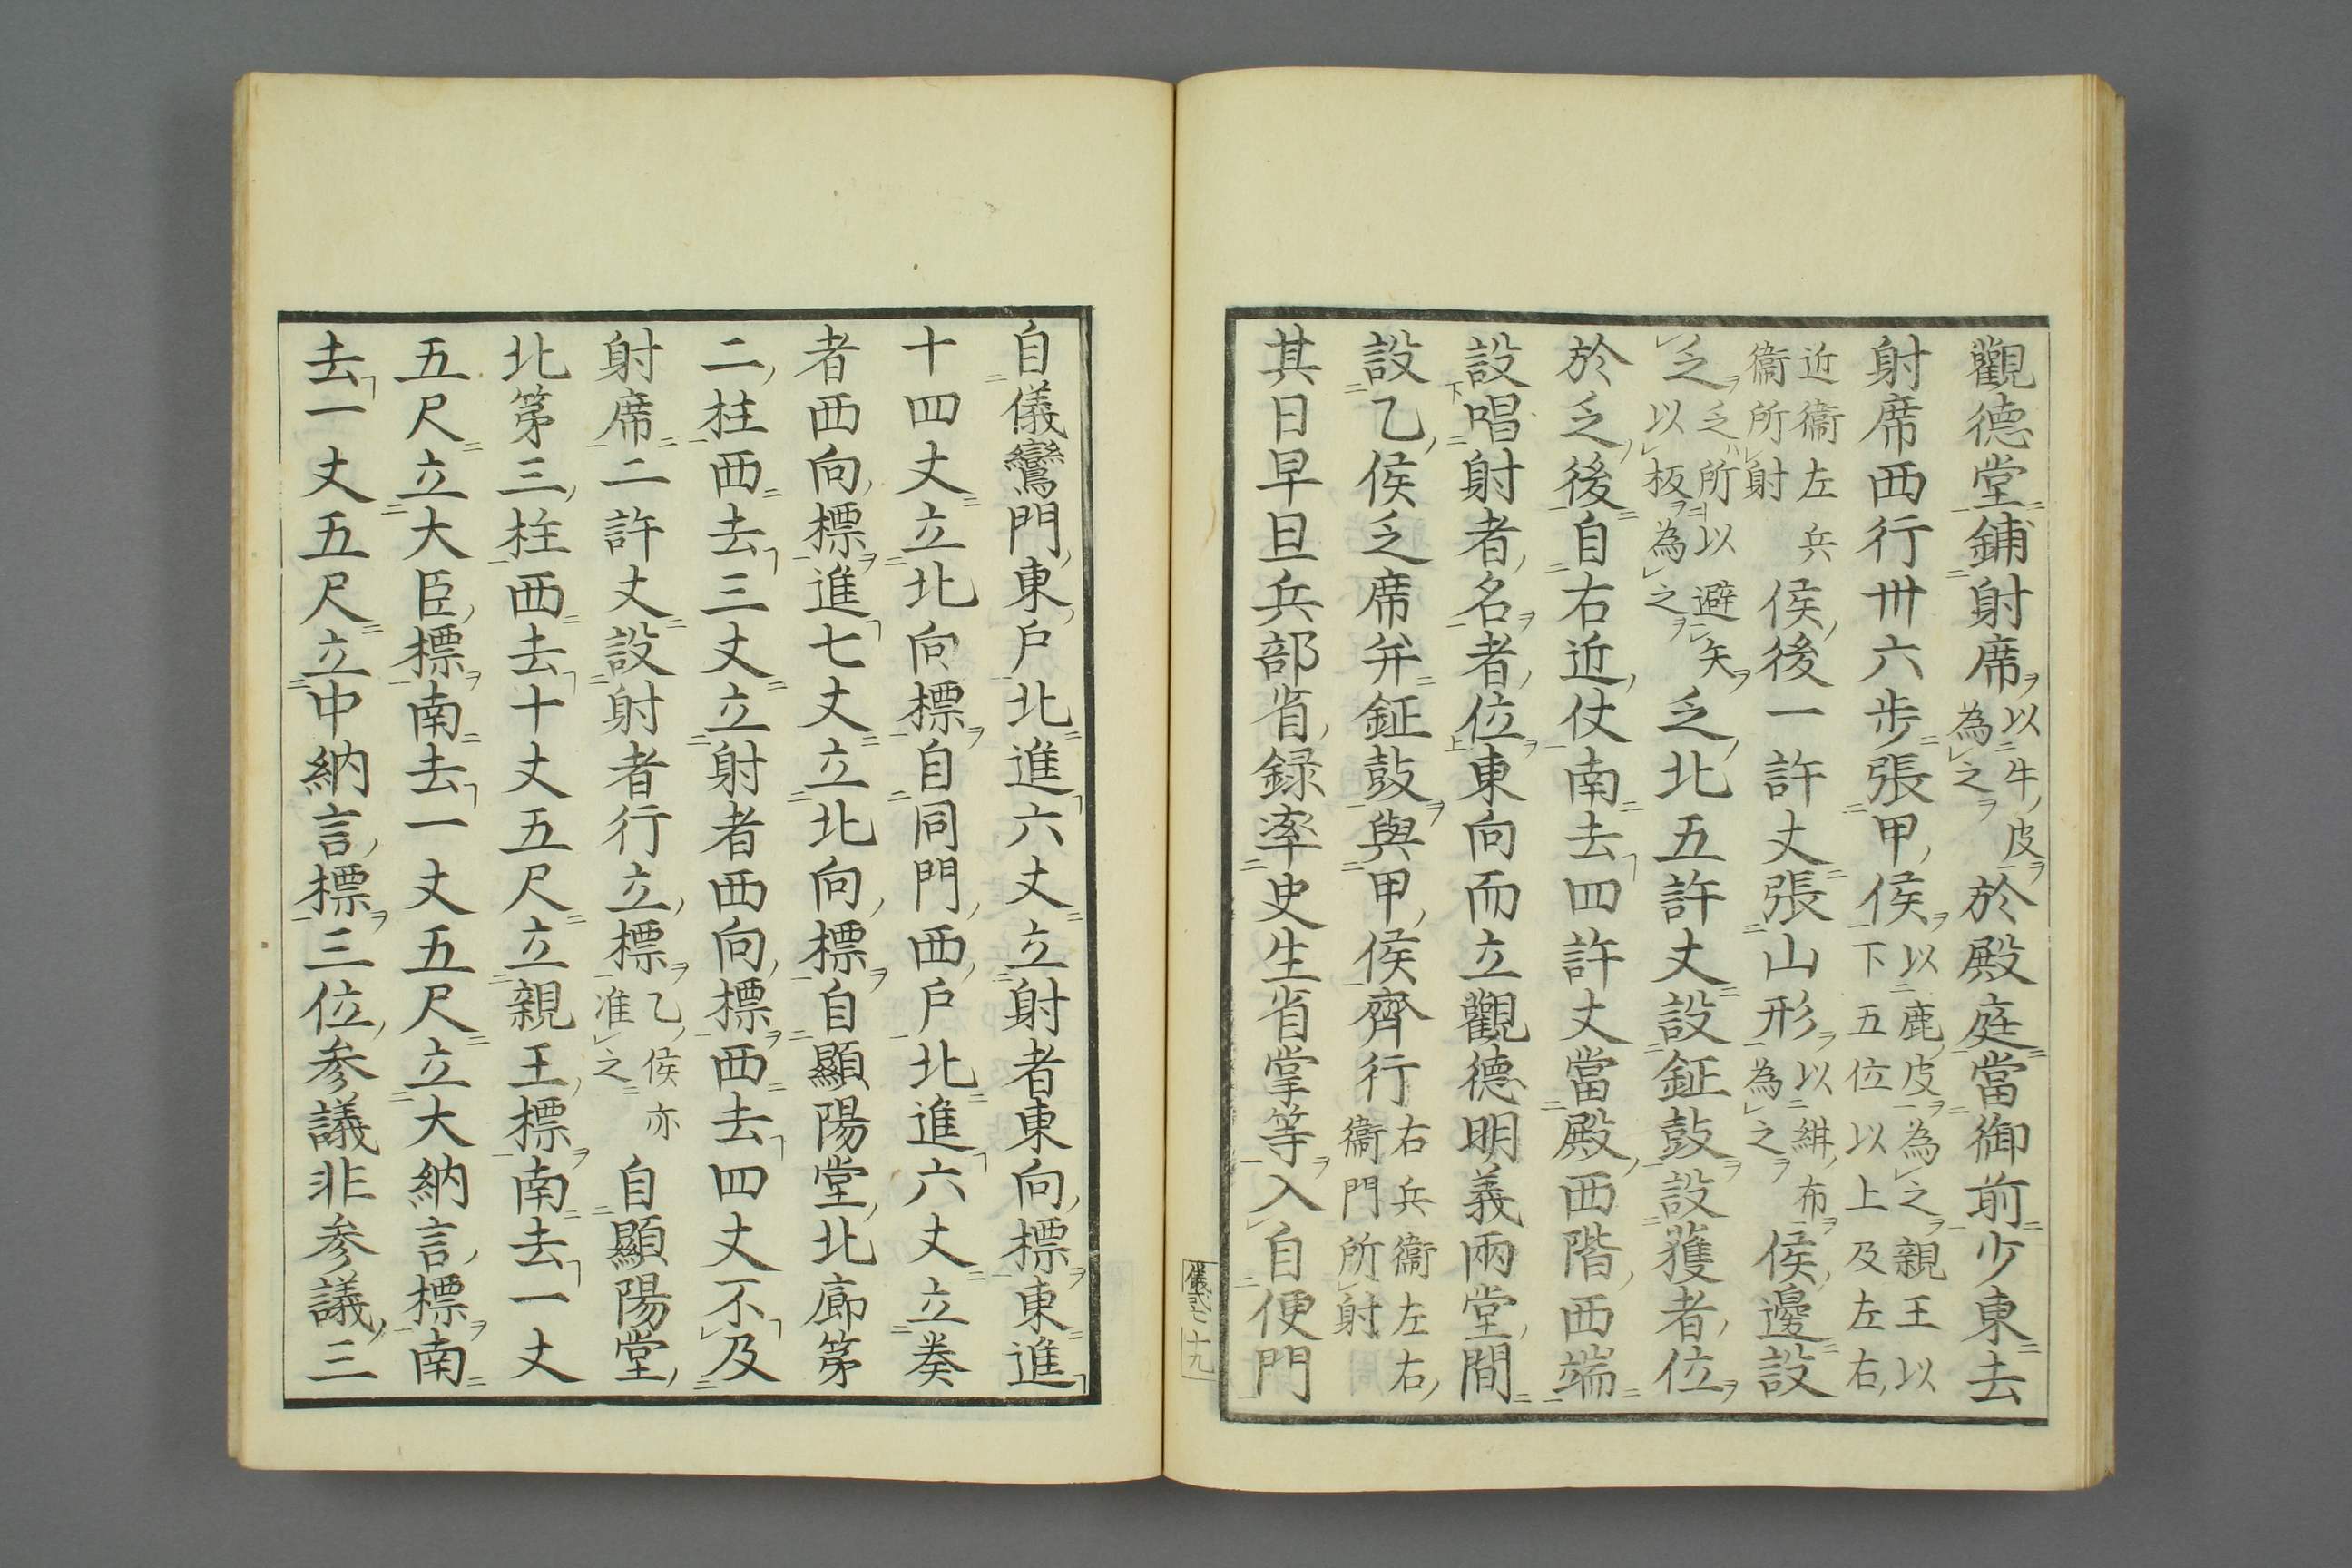 觀德堂鋪射席以牛皮為之於殿庭當御前少東去
射席西行卅六步張甲侯以鹿皮為之親王以下五位以上及左右
近衞左兵衞所射侯後一許丈張山形以紺布為之侯邊設
乏乏所以避矢以板為之乏北五許丈設鉦鼓設獲者位
於乏後自右近仗南去四許丈當殿西階西端
設唱射者名者位東向而立觀德明義兩堂間
設乙侯乏席并鉦鼓與甲侯齊行右兵衞左右衞門所射
其日早旦兵部省録率史生省掌等入自便門
儀式七 十九
自儀鸞門東戶北進六丈立射者東向標東進
十四丈立北向標自同門西戶北進六丈立奏
者西向標進七丈立北向標自顯陽堂北廊第
二柱西去三丈立射者西向標西去四丈不及
射席二許丈設射者行立標乙侯亦准之自顯陽堂
北第三柱西去十丈五尺立親王標南去一丈
五尺立大臣標南去一丈五尺立大納言標南
去一丈五尺立中納言標三位参議非参議三